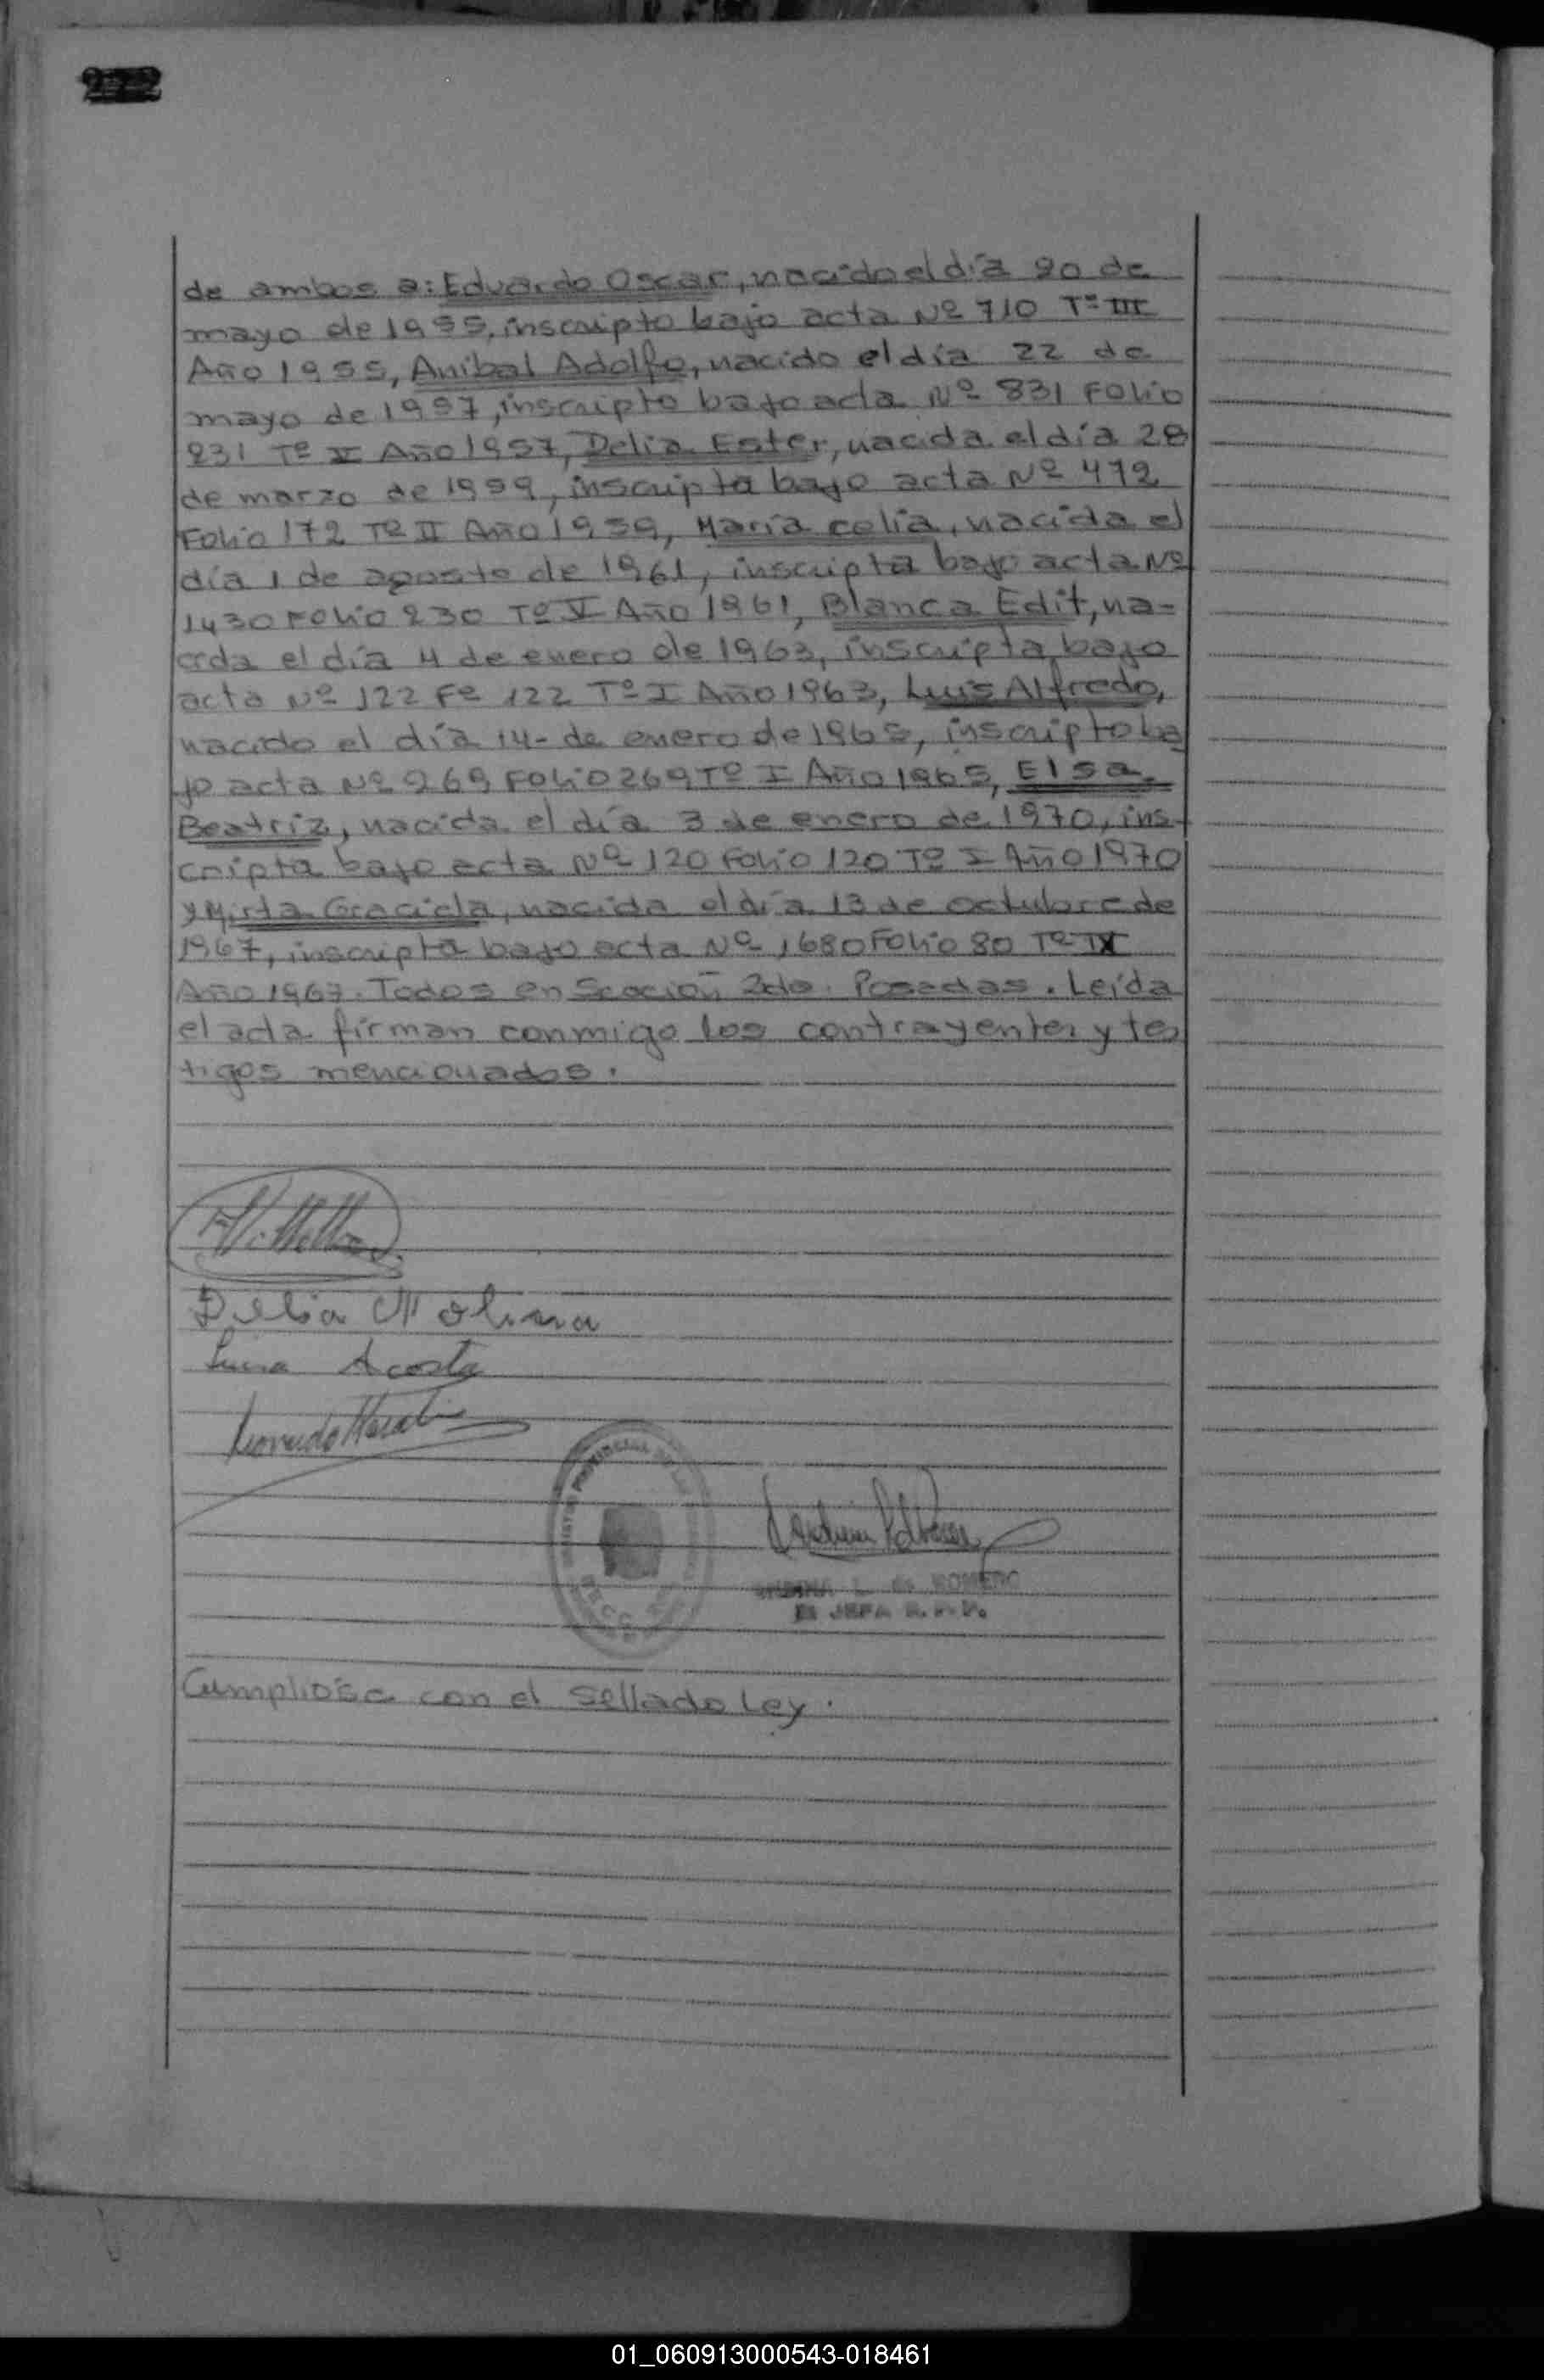 272
de ambos a: Eduardo Oscar, nacido el día 20 de
mayo de 1955, inscripto bajo acta Nº 710 Tº III
Año 1955, Anibal Adolfo, nacido el día 22 de
mayo de 1957, inscripto bajo acta Nº 831 Folio
231 Tº V Año 1957, Delia Ester, nacida el día 28
de marzo de 1959, inscripta bajo acta Nº 472
Folio 172 Tº II Año 1959, María celia, nacida el
día 1 de agosto de 1961, inscripta bajo acta Nº
1430 Folio 230 Tº V Año 1961, Blanca Edit, na-
cida el día 4 de enero de 1963, inscripta bajo
acta Nº 122 Fº 122 Tº I Año 1963, Luis Alfredo,
nacido el día 14- de enero de 1965, inscripto ba
jo acta Nº 269 Folio 269 Tº I Año 1965, Elsa
Beatriz, nacida el día 3 de enero de 1970, ins-
cripta bajo acta Nº 120 Folio 120 Tº I Año 1970
y Mirta Graciela, nacida el día 13 de octubre de
1967, inscripta bajo acta Nº 1680 Folio 80 Tº IX
Año 1967. Todos en Sección 2da. Posadas. Leída
el acta firman conmigo los contrayentes y tes
tigos mencionados.
Delia Molina
Lucia Acosta
PROVINCIAL
L. de ROMERO
JEFA R.P.P.
Cumplióse con el Sellado Ley.
01_060913000543-018461